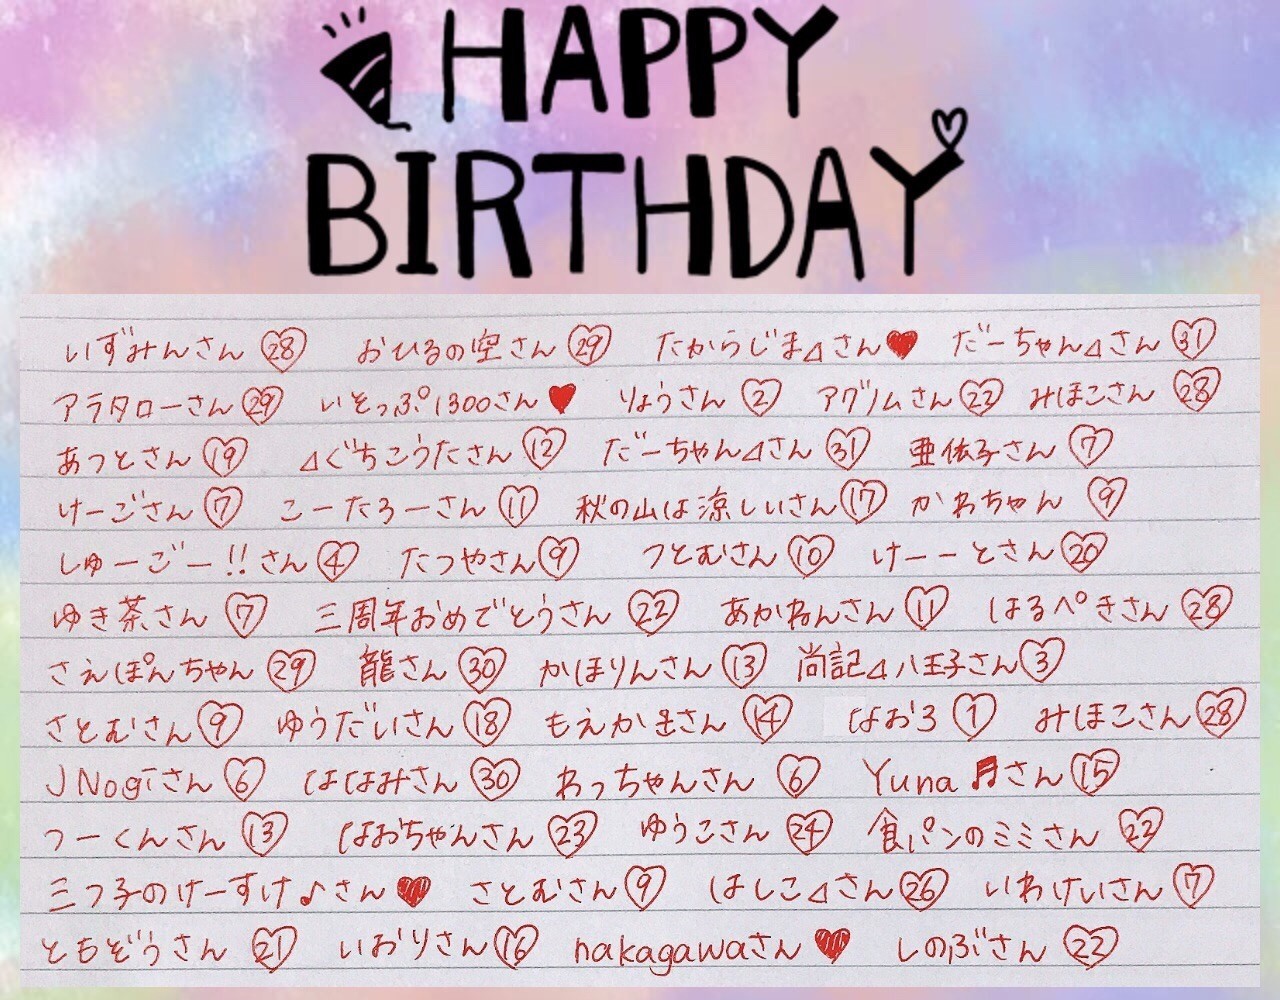 HAPPY
BIRTHDAY
いずみんさん 28 おひるの空さん 29 たからじま⊿さん♥ だーちゃん⊿さん 31
アラタローさん 29 いそっぷ1300さん♥ りょうさん 2 アグノムさん 22 みほこさん 28
あつとさん 19 ⊿ぐちこうたさん 12 だーちゃん⊿さん 31 亜依子さん 7
けーごさん 7 こーたろーさん 11 秋の山は涼しいさん 17 かわちゃん 9
しゅーごー!!さん 4 たつやさん 9 つとむさん 10 けーーとさん 20
ゆき茶さん 7 三周年おめでとうさん 22 あかねんさん 11 はるぺきさん 28
さえぽんちゃん 29 龍さん 30 かほりんさん 13 尚記⊿八王子さん 3
さとむさん 9 ゆうだいさん 18 もえかさん 14 なおろ 1 みほこさん 28
JNogiさん 6 ははみさん 30 わっちゃんさん 6 Yuna♬さん 15
つーくんさん 13 なおちゃんさん 23 ゆうこさん 24 食パンのミミさん 22
三つ子のけーすけ♪さん♥ さとむさん 9 はしこ⊿さん 26 いわけいさん 7
ともぞうさん 21 いおりさん 16 nakagawaさん♥ しのぶさん 22